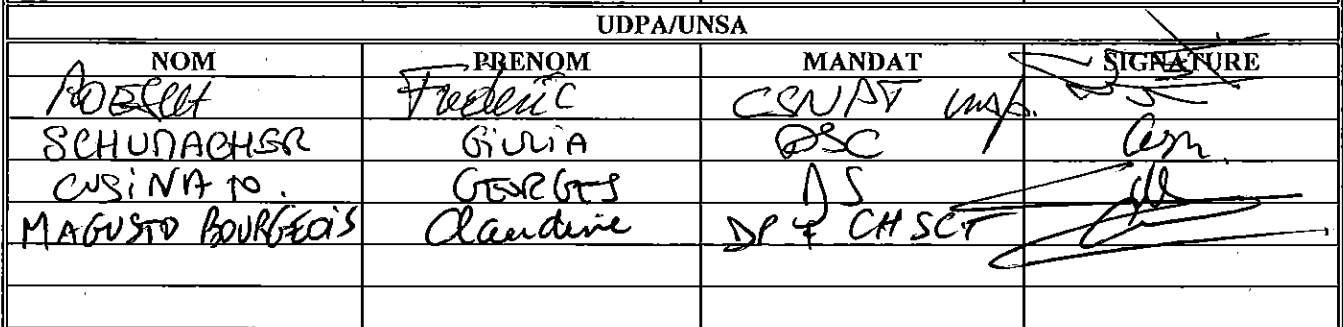 UDPA/UNSA
NOM PRENOM MANDAT SIGNATURE
Frederic
SCHUMACHER GiULiA DSC
CUSiNATO. GEORGES DS
MAGUSTO BOURGEOIS Claudine DP + CHSCT